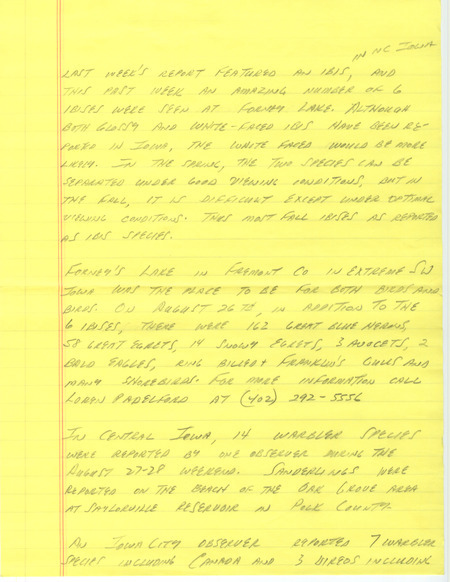 IN NC IOWA
LAST WEEK'S REPORT FEATURED AN IBIS, AND
THIS PAST WEEK AN AMAZING NUMBER OF 6
IBISES WERE SEEN AT FORNEY LAKE. ALTHOUGH
BOTH GLOSSY AND WHITE-FACED IBIS HAVE BEEN RE-
PORTED IN IOWA, THE WHITE FACED WOULD BE MORE
LIKELY. IN THE SPRING, THE TWO SPECIES CAN BE
SEPARATED UNDER GOOD VIEWING CONDITIONS, BUT IN
THE FALL, IT IS DIFFICULT EXCEPT UNDER OPTIMAL
VIEWING CONDITIONS. THUS MOST FALL IBISES AS REPORTED
AS IBIS SPECIES.
FORNEY'S LAKE IN FREMONT CO IN EXTREME SW
IOWA WAS THE PLACE TO BE FOR BOTH BIRDS AND
BIRDS. ON AUGUST 26TH, IN ADDITION TO THE
6 IBISES, THERE WERE 162 GREAT BLUE HERONS,
58 GREAT EGRETS, 14 SNOWY EGRETS, 3 AVOCETS, 2
BALD EAGLES, RING BILLED & FRANKLIN'S GULLS AND
MANY SHOREBIRDS. FOR MORE INFORMATION CALL
LOREN PADELFORD AT (402) 292-5556
IN CENTRAL IOWA, 14 WARBLER SPECIES
WERE REPORTED BY ONE OBSERVER DURING THE
AUGUST 27-28 WEEKEND. SANDERLINGS WERE
REPORTED ON THE BEACH OF THE OAK GROVE AREA
AT SAYLORVILLE RESERVOIR IN POLK COUNTY.
AN IOWA CITY OBSERVER REPORTED 7 WARBLER
SPECIES INCLUDING CANADA AND 3 VIREOS INCLUDING